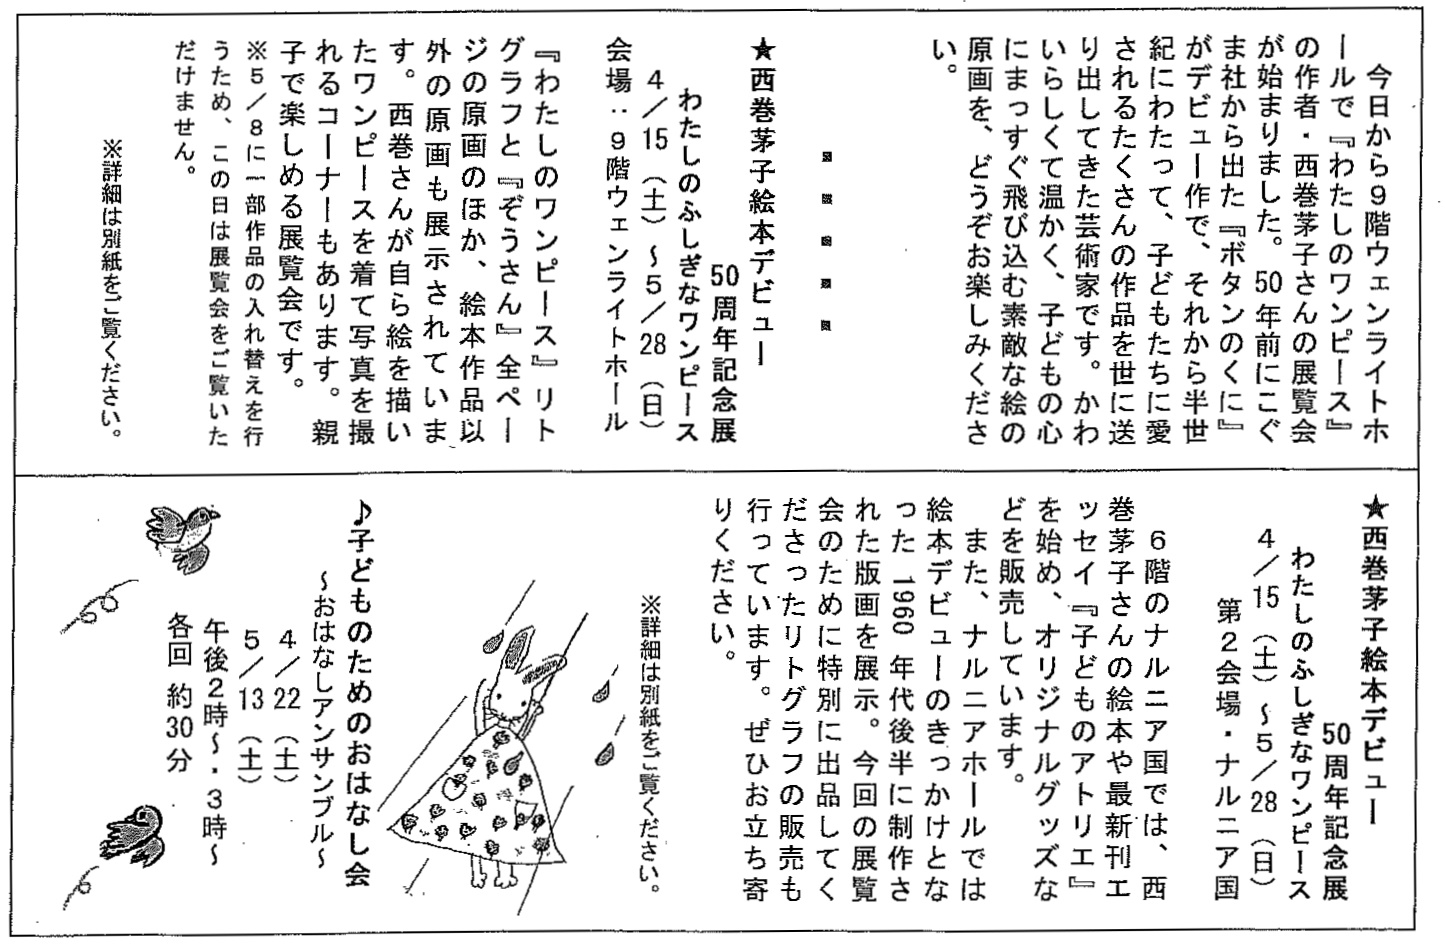 今日から９階ウェンライトホ
ールで『わたしのワンピース』
の作者・西巻茅子さんの展覧会
が始まりました。50年前にこぐ
ま社から出た『ボタンのくに』
がデビュー作で、それから半世
紀にわたって、子どもたちに愛
されるたくさんの作品を世に送
り出してきた芸術家です。かわ
いらしくて温かく、子どもの心
にまっすぐ飛び込む素敵な絵の
原画を、どうぞお楽しみくださ
い。
★西巻茅子絵本デビュー
50周年記念展
わたしのふしぎなワンピース
４／15（土）～５／28（日）
会場：９階ウェンライトホール
『わたしのワンピース』リト
グラフと『ぞうさん』全ペー
ジの原画のほか、絵本作品以
外の原画も展示されていま
す。西巻さんが自ら絵を描い
たワンピースを着て写真を撮
れるコーナーもあります。親
子で楽しめる展覧会です。
※５／８に一部作品の入れ替えを行
うため、この日は展覧会をご覧いた
だけません。
※詳細は別紙をご覧ください。
★西巻茅子絵本デビュー
50周年記念展
わたしのふしぎなワンピース
４／15（土）～５／28（日）
第２会場・ナルニア国
６階のナルニア国では、西
巻茅子さんの絵本や最新刊エ
ッセイ『子どものアトリエ』
を始め、オリジナルグッズな
どを販売しています。
また、ナルニアホールでは
絵本デビューのきっかけとな
った 1960 年代後半に制作さ
れた版画を展示。今回の展覧
会のために特別に出品してく
ださったリトグラフの販売も
行っています。ぜひお立ち寄
りください。
※詳細は別紙をご覧ください。
♪子どものためのおはなし会
～おはなしアンサンブル～
４／22（土）
５／13（土）
午後２時～・３時～
各回 約30分